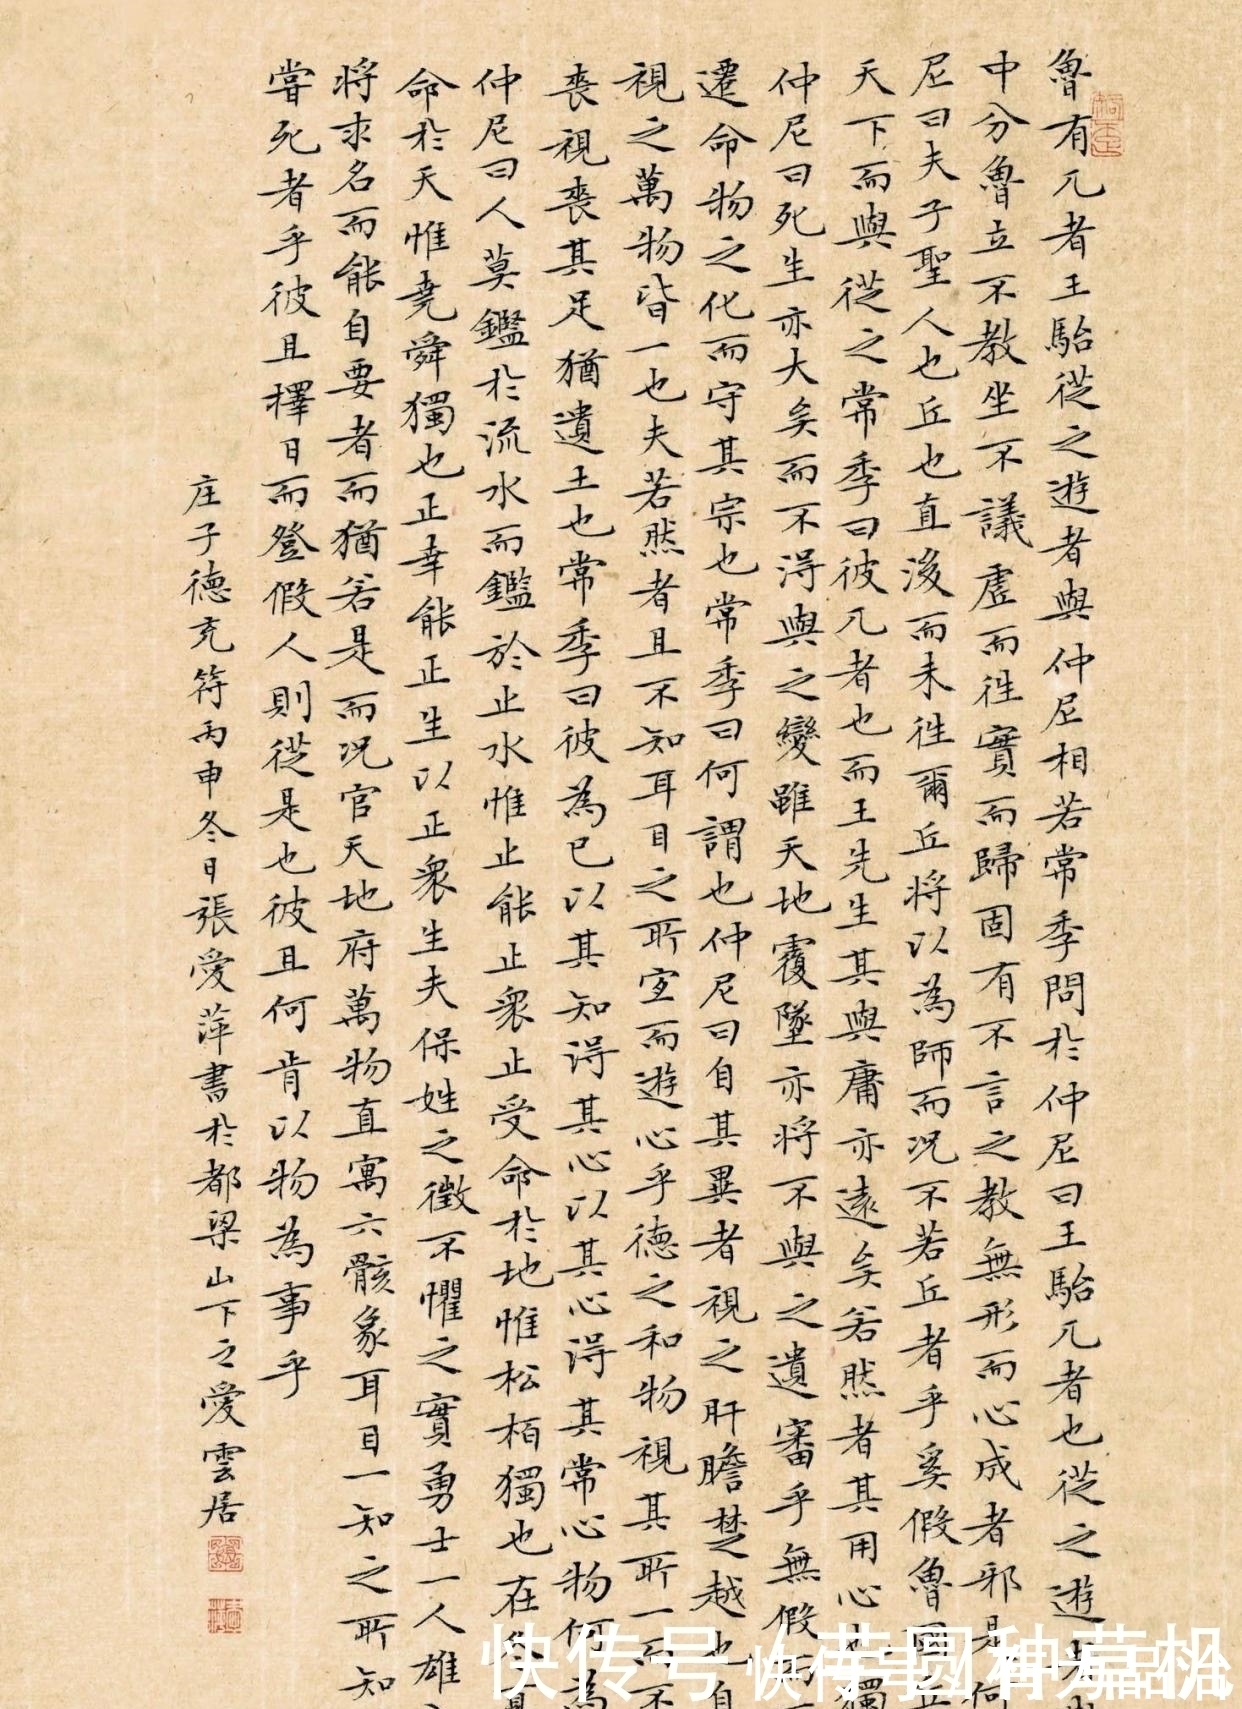 魯有兀者王駘從之遊者與仲尼相若常季問於仲尼曰王駘兀者也從之遊者與
中分魯立不教坐不議虛而往實而歸固有不言之教無形而心成者邪是何
尼曰夫子聖人也丘也直後而未往爾丘將以為師而況不若丘者乎奚假魯國丘
天下而與從之常季曰彼兀者也而王先生其與庸亦遠矣若然者其用心也獨
仲尼曰死生亦大矣而不得與之變雖天地覆墜亦將不與之遺審乎無假而
遷命物之化而守其宗也常季曰何謂也仲尼曰自其異者視之肝膽楚越也自
視之萬物皆一也夫若然者且不知耳目之所宜而遊心乎德之和物視其所一而不
喪視喪其足猶遺土也常季曰彼為己以其知得其心以其心得其常心物何為
仲尼曰人莫鑑於流水而鑑於止水惟止能止眾止受命於地惟松柏獨也在冬夏
命於天惟堯舜獨也正幸能正生以正眾生夫保始之徵不懼之實勇士一人雄
將求名而能自要者而猶若是而況官天地府萬物直寓六骸象耳目一知之所知
嘗死者乎彼且擇日而登假人則從是也彼且何肯以物為事乎
庄子德充符丙申冬日張愛萍書於都梁山下之愛雲居